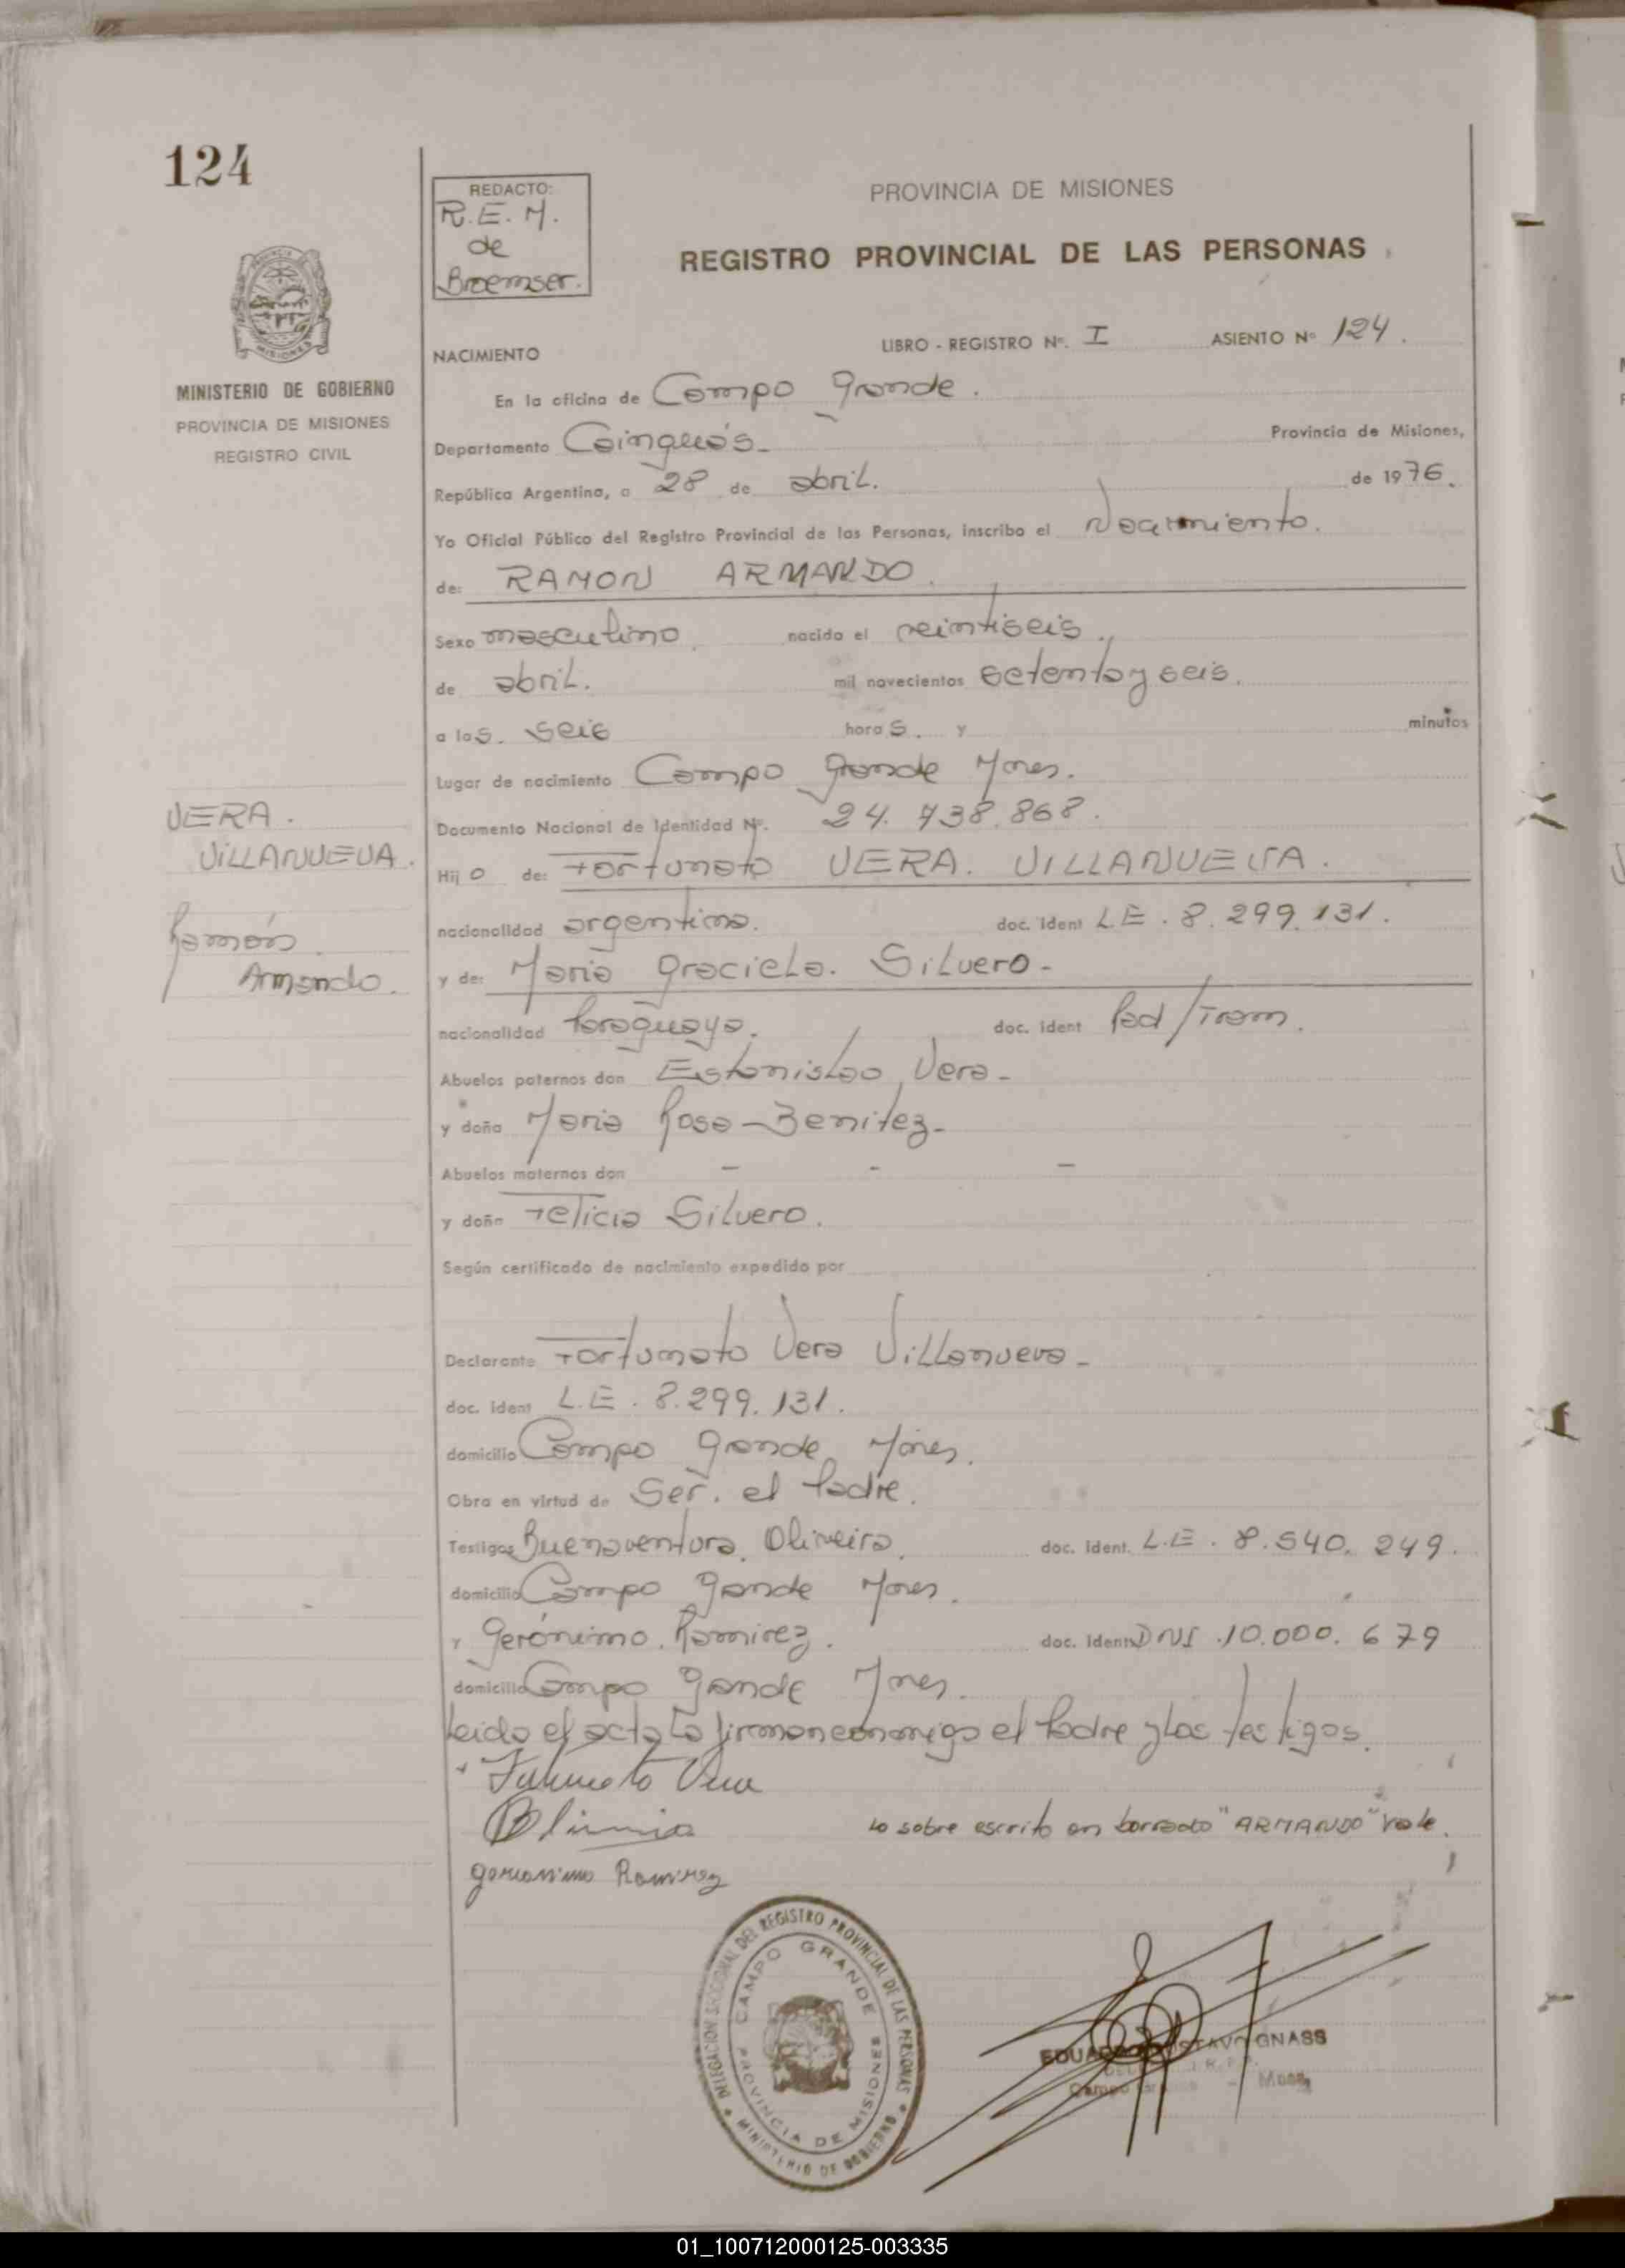 124
REDACTO:
R.E.M.
de
Broemser.
PROVINCIA DE MISIONES
REGISTRO PROVINCIAL DE LAS PERSONAS
MISIONES
MINISTERIO DE GOBIERNO
PROVINCIA DE MISIONES
REGISTRO CIVIL
LIBRO - REGISTRO Nº. I ASIENTO Nº 124.
NACIMIENTO
En la oficina de Campo Grande.
Departamento Cainguás- Provincia de Misiones,
República Argentina, a 28 de abril. de 1976.
Yo Oficial Público del Registro Provincial de las Personas, inscribo el Nacimiento.
de: RAMON ARMANDO.
Sexo masculino. nacido el veintiseis.
de abril. mil novecientos setenta y seis.
a las. seis horas. y minutos
Lugar de nacimiento Campo Grande Mnes.
Documento Nacional de Identidad Nº. 24.738.868.
Hijo de: Fortunato VERA. VILLANUEVA.
VERA.
VILLANUEVA.
Ramón
Armando.
nacionalidad argentina. doc. ident L.E. 8.299.131.
y de: Maria Graciela. Silvero-
nacionalidad Paraguaya. doc. ident Rad/Tram.
Abuelos paternos don Estanislao Vera-
y doña Maria Rosa-Benitez-
Abuelos maternos don - - -
y doña Felicia Silvero.
Según certificado de nacimiento expedido por
Declarante Fortunato Vera Villanueva-
doc. ident L.E. 8.299.131.
domicilio Campo Grande Mnes.
Obra en virtud de Ser. el Padre.
Testigos Buenaventura Oliveira. doc. ident. L.E. 8.540.249.
domicilio Campo Grande Mnes.
y Gerónimo. Ramirez. doc. ident DNI .10.000.679
domicilio Campo Grande Mnes.
Leida el acta la firman conmigo el Padre y los testigos.
Vera
Lo sobre escrito en borrado "ARMANDO" Vale.
Ramirez
DELEGACION SECCIONAL DEL REGISTRO PROVINCIAL DE LAS PERSONAS
CAMPO GRANDE
PROVINCIA DE MISIONES
MINISTERIO DE GOBIERNO
EDUARDO GUSTAVO GNASS
01_100712000125-003335